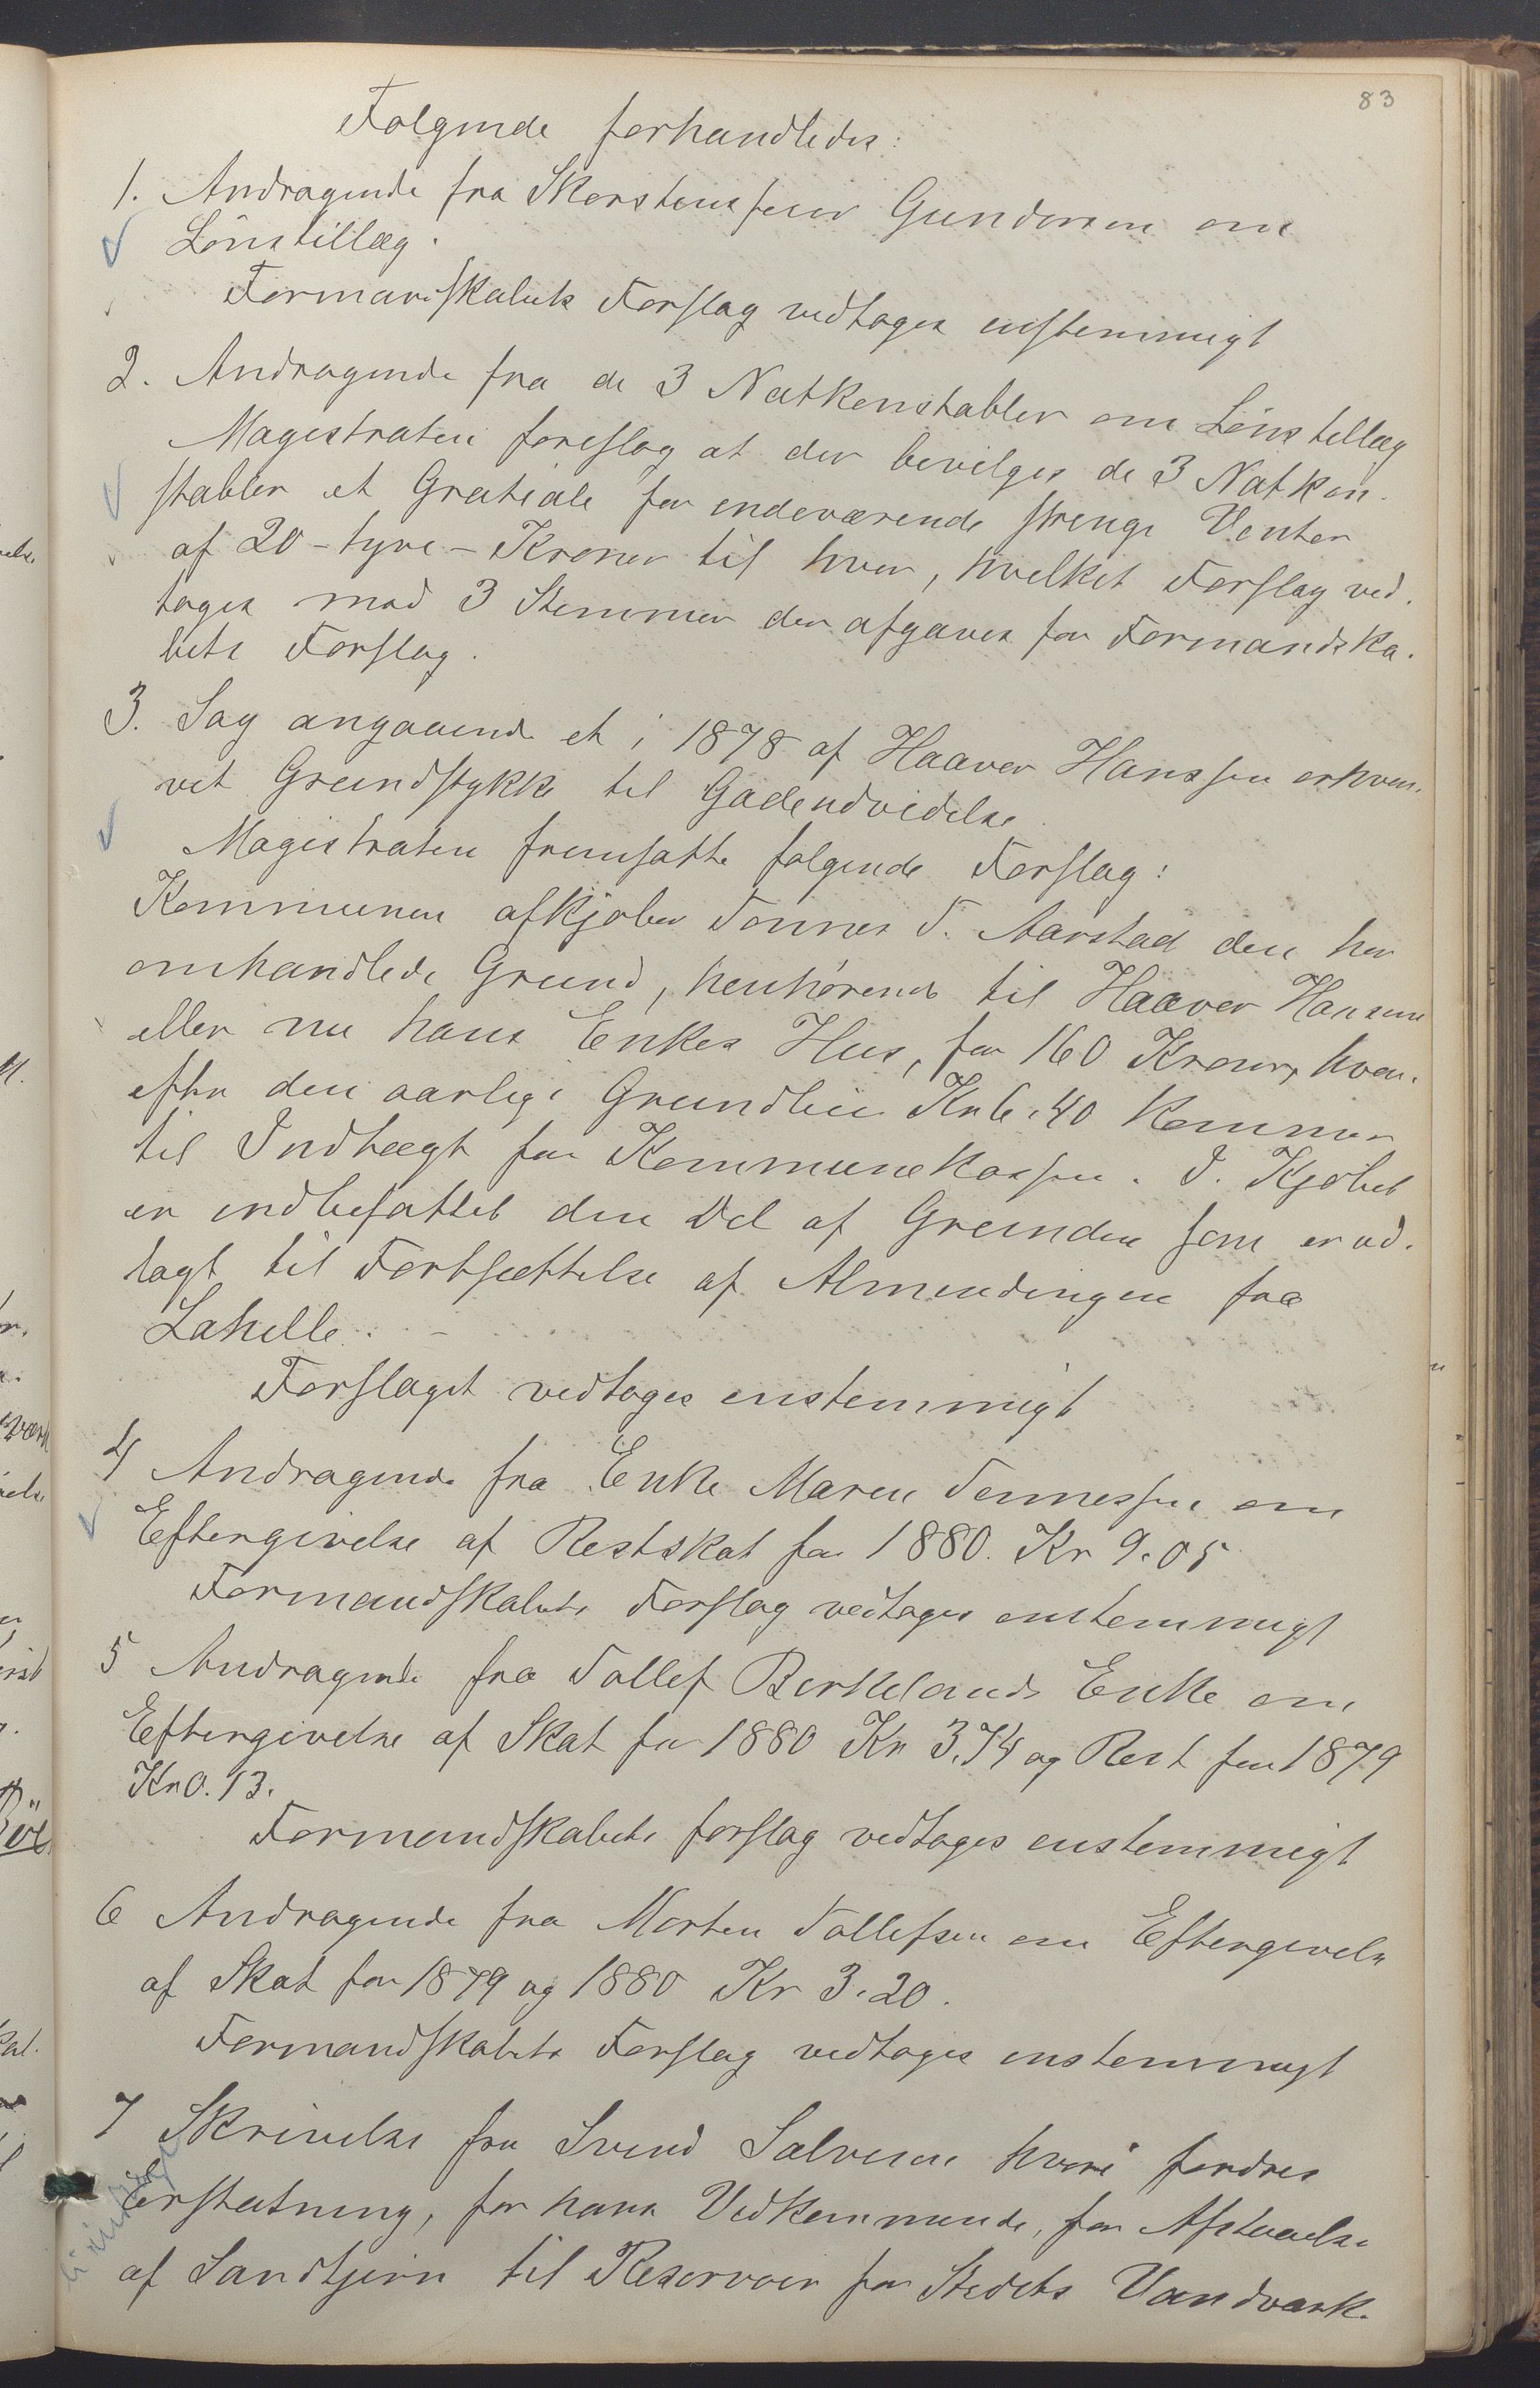 83
Følgende forhandledes:
1. Andragende fra Skorstensfeier Gundersen om
Lönstillæg.
Formandskabets Forslag vedtoges enstemmigt
2. Andragende fra de 3 Natkonstabler om Lönstillæg
Magistraten foreslog at der bevilges de 3 Natkon-
stabler et Gratiale for indeværende strenge Venter
af 20 - tyve - Kroner til hver, hvilket Forslag ved-
toges mod 3 Stemmer der afgaves for Formandska-
bets Forslag.
3. Sag angaaende et i 1878 af Haaver Hanssen erhver-
vet Grundstykke til Gadeudvidelse.
Magistraten fremsatte følgende Forslag:
Kommunen afkjøber Tønnes T. Aarstad den her
omhandlede Grund, henhørende til Haaver Hansens
eller nu hans Enkes Hus, for 160 Kroner, hvor-
efter den aarlige Grundleie Kr 6.40 kommer
til Indtægt for Kommunekassen. I Kjøbet
er indbefattet den Del af Grunden som er ud-
lagt til Fortsættelse af Almendingen fra
Lahelle. -
Forslaget vedtoges enstemmigt
4 Andragende fra Enke Maren Tønnessen om
Eftergivelse af Restskat for 1880. Kr 9.05
Formandskabets Forslag vedtoges enstemmigt
5 Andragende fra Tollef Birkelands Enke om
Eftergivelse af Skat for 1880 Kr 3.74 og Rest for 1879
Kr 0.13.
Formandskabets forslag vedtoges enstemmigt
6 Andragende fra Morten Tollefsen om Eftergivelse
af Skat for 1879 og 1880 Kr 3.20.
Formandskabets Forslag vedtoges enstemmigt
7 Skrivelse fra Svend Salvesen hvori fordres
Erstatning, for hans Vedkommende, for Afstaaelse
af Sandtjern til Reservoir for Stedets Vandværk.